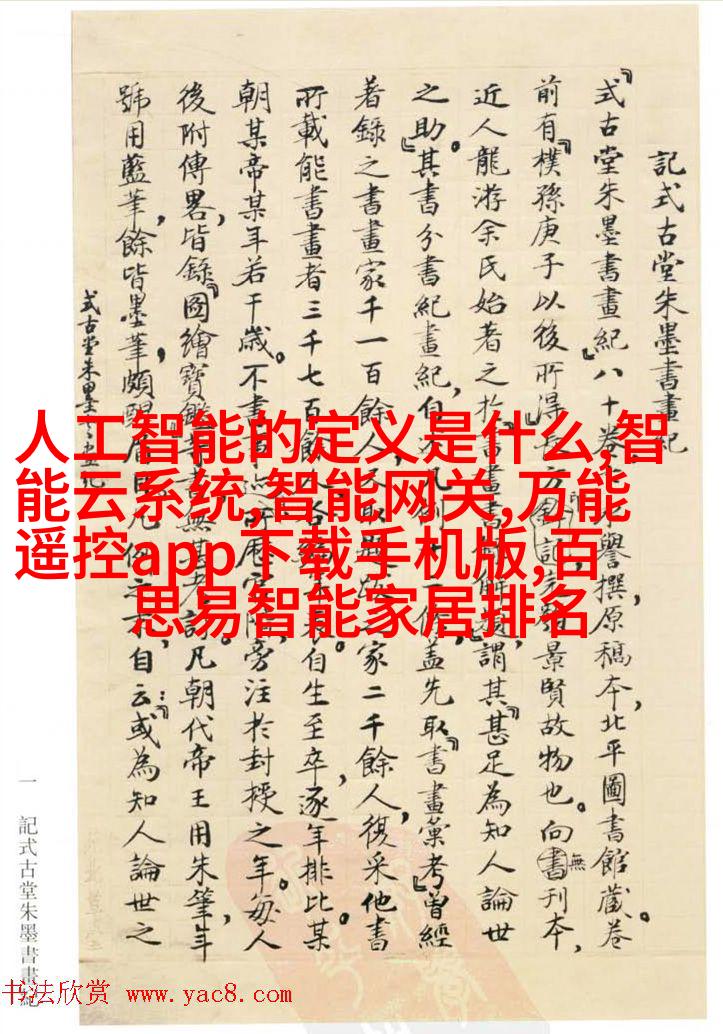 記式古堂朱墨書畫紀
『式古堂朱墨書畫紀』八十卷 譽撰,原稿本,北平圖書館藏。卷
前有『樸孫庚子以後所得長方 記 景賢故物也。向書無刊本,
近人龍游余氏始著之於『書畫書 解題謂其『甚足為知人論世
之助』。其書分書紀畫紀,自 凡例十二條,蓋先取『書畫彙考』曾經
著錄之書畫家千一百餘人,又取題跋之家二千餘人,復采他書
所載能書畫者三千七百餘人 表自生至卒,逐年排比某
朝某帝某年若干歲。不書事 所歷官階旁注於封授之年。每人
後附傳畧,皆錄『圖繪寶鑑等書無甚考訂。凡朝代帝王用朱筆,年
號用藍筆,餘皆墨筆,頗醒眉目凡例之末自云:『或為知人論世之
式古堂朱墨書畫紀
一 記式古堂朱墨書畫紀
人工智能的定义是什么,智
能云系统,智能网关,万能
遥控app下载手机版,百
思易智能家居排名
书法欣赏 www.yac8.com